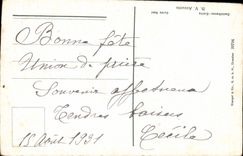 Bonne fête
Union de prière
Souvenir affectueux
Tendres baisers
Cécile
15 Août 1931